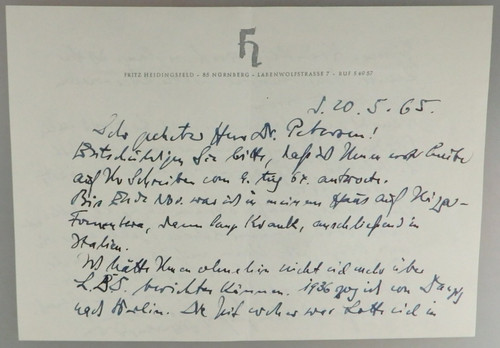 FRITZ HEIDINGSFELD · 85 NÜRNBERG · LABENWOLFSTRASSE 7 · RUF
20.5.65.
Sehr geehrter Herr Dr. Petersen!
Entschuldigen Sie bitte, daß ich Ihnen erst heute
auf Ihr Schreiben vom 9. Aug 64 antworte.
Bis Ende Nov. war ich in meinem Haus auf
dann lang krank, anschließend in
Italien.
Ich hätte Ihnen ohnehin nicht viel mehr über
berichten können. 1936 zog ich von Danzig
nach Berlin. Die Zeit vorher war ich in